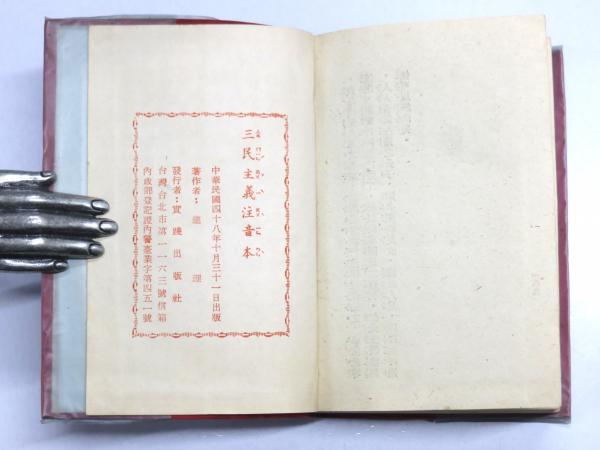 三民主義注音本
中華民國四十八年十月三十一日出版
著作者：總理
發行者：實踐出版社
台灣台北市第一一六三號信箱
內政部登記證內警臺業字第四五一號